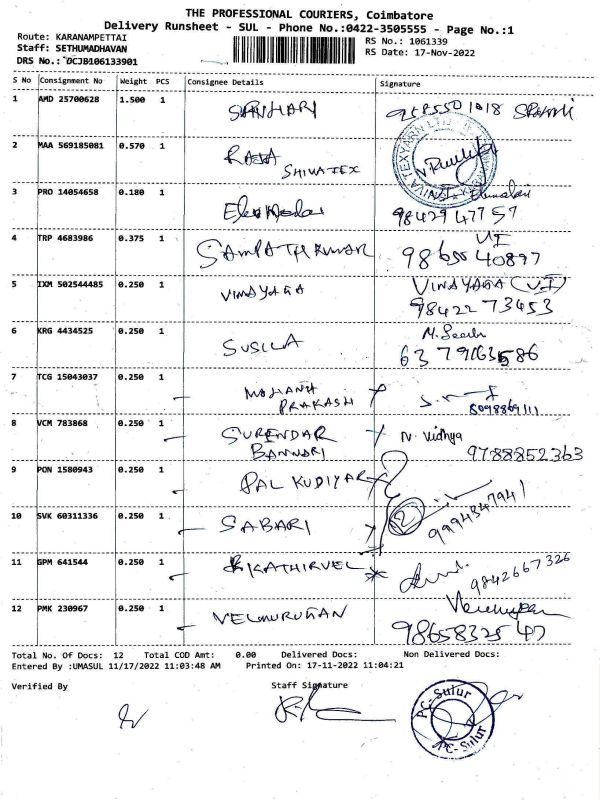 THE PROFESSIONAL COURIERS, Coimbatore
Delivery Runsheet - SUL - Phone No.:0422-3505555 - Page No.:1
Route: KARANAMPETTAI
RS No.: 1061339
Staff: SETHUMADHAVAN
RS Date: 17-Nov-2022
DRS No.: DCJB106133901
S No Consignment No Weight PCS Consignee Details Signature
1 AMD 25700628 1.500 1 SRINHARI 9585501018
2 MAA 569185081 0.570 1 RAJA SHIVATEX
3 PRO 14054658 0.180 1 9842947757
4 TRP 4683986 0.375 1 SAMPATHKUMAR VI 9865040897
5 IXM 502544485 0.250 1 VINAYAGA VINAYAGA (VI) 9842273453
6 KRG 4434525 0.250 1 SUSILA 6379163586
7 TCG 15043037 0.250 1 MOHANA PRAKASH 8098869111
8 VCM 783868 0.250 1 SURENDAR BANNARI N. Vidhya 9788852363
9 PON 1580943 0.250 1 PAL KUDIYAR
10 SVK 60311336 0.250 1 SABARI 9994847941
11 GPM 641544 0.250 1 KATHIRVEL 9842667326
12 PMK 230967 0.250 1 VELMURUGAN 9865832547
Total No. Of Docs: 12 Total COD Amt: 0.00 Delivered Docs: Non Delivered Docs:
Entered By :UMASUL 11/17/2022 11:03:48 AM Printed On: 17-11-2022 11:04:21
Verified By Staff Signature
PC-Sulur
PC-Sulur